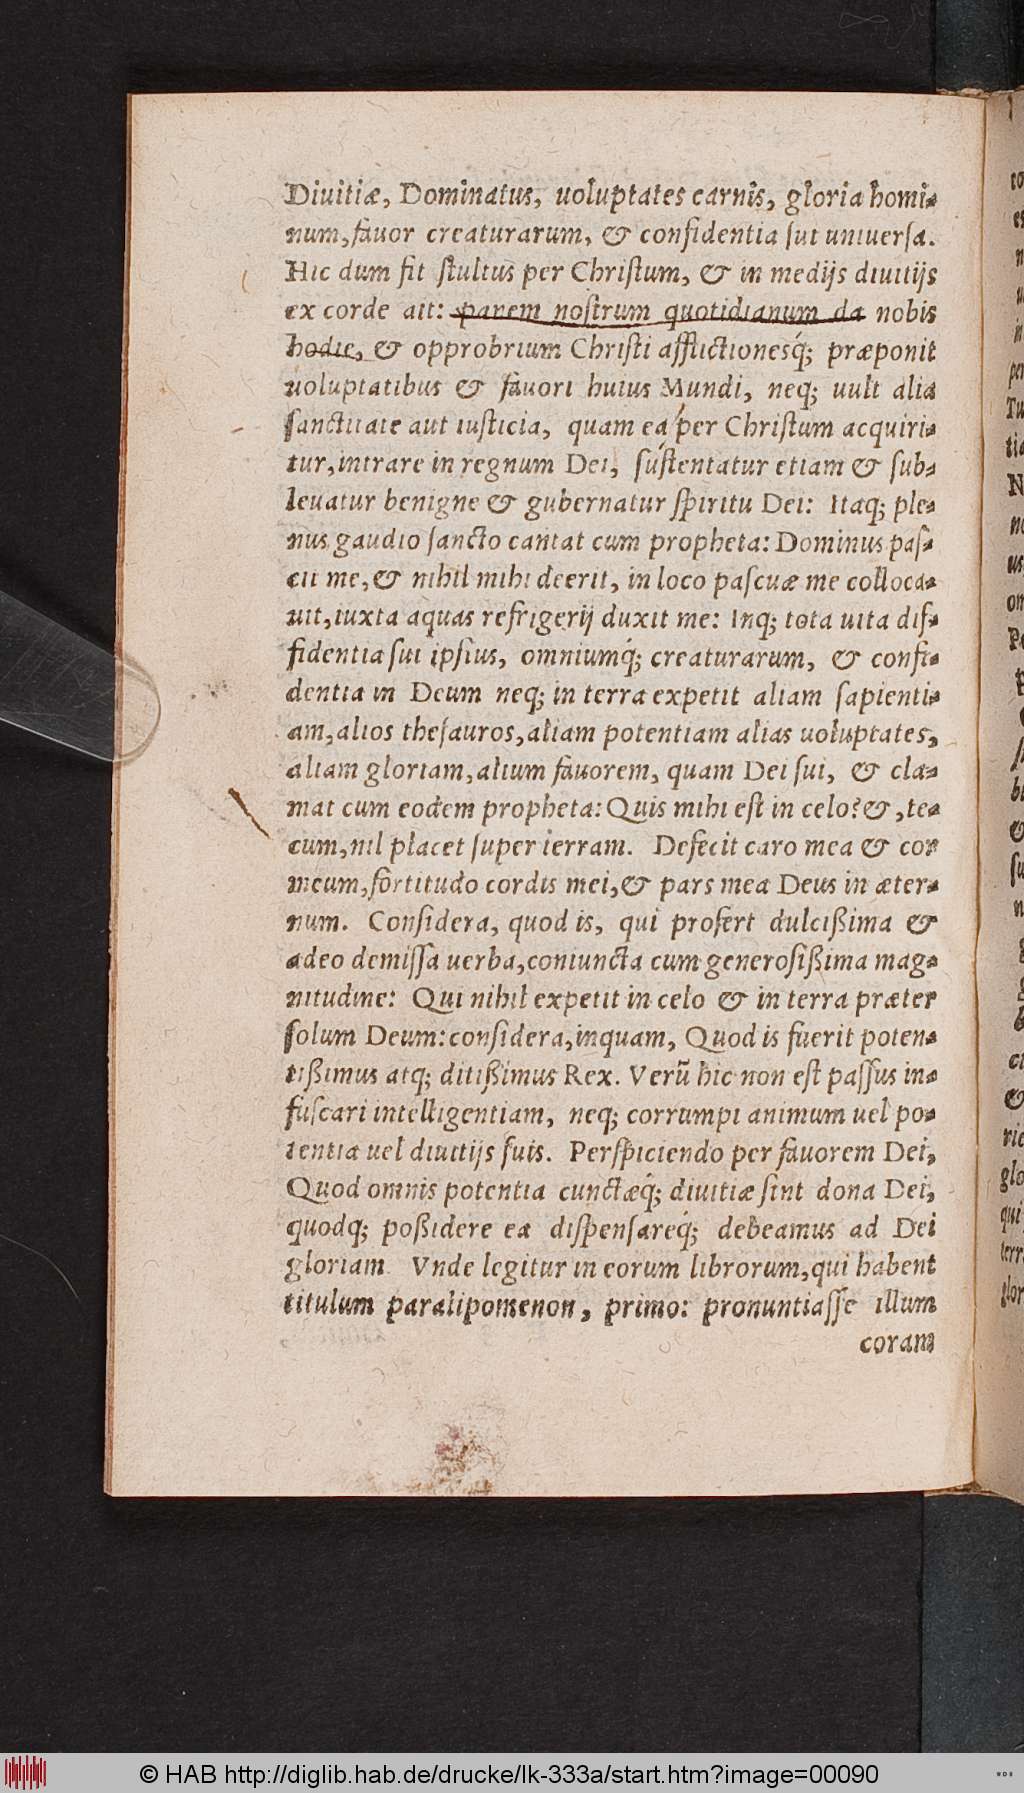 Diuitiæ, Dominatus, uoluptates carnis, gloria homi-
num, fauor creaturarum, & confidentia sui uniuersa.
Hic dum fit stultus per Christum, & in medijs diuitijs
ex corde ait: panem nostrum quotidianum da nobis
hodie, & opprobrium Christi afflictionesq́; præponit
uoluptatibus & fauori huius Mundi, neq; uult alia
sanctitate aut iusticia, quam ea per Christum acquiri-
tur, intrare in regnum Dei, sustentatur etiam & sub-
leuatur benigne & gubernatur spiritu Dei: Itaq; ple-
nus gaudio sancto cantat cum propheta: Dominus pas-
cit me, & nihil mihi deerit, in loco pascuæ me colloca-
uit, iuxta aquas refrigerij duxit me: Inq; tota uita dif-
fidentia sui ipsius, omniumq́; creaturarum, & confi-
dentia in Deum neq; in terra expetit aliam sapienti-
am, alios thesauros, aliam potentiam alias uoluptates,
aliam gloriam, alium fauorem, quam Dei sui, & cla-
mat cum eodem propheta: Quis mihi est in celo? &, te-
cum, nil placet super terram. Defecit caro mea & cor
meum, fortitudo cordis mei, & pars mea Deus in æter-
num. Considera, quod is, qui profert dulcißima &
adeo demissa uerba, coniuncta cum generosißima mag-
nitudine: Qui nihil expetit in celo & in terra præter
solum Deum: considera, inquam, Quod is fuerit poten-
tißimus atq; ditißimus Rex. Verũ hic non est passus in-
fuscari intelligentiam, neq; corrumpi animum uel po-
tentia uel diuitijs suis. Perspiciendo per fauorem Dei,
Quod omnis potentia cunctæq́; diuitiæ sint dona Dei,
quodq; poßidere ea dispensareq́; debeamus ad Dei
gloriam. Vnde legitur in eorum librorum, qui habent
titulum paralipomenon, primo: pronuntiasse illum
coram
© HAB http://diglib.hab.de/drucke/lk-333a/start.htm?image=00090